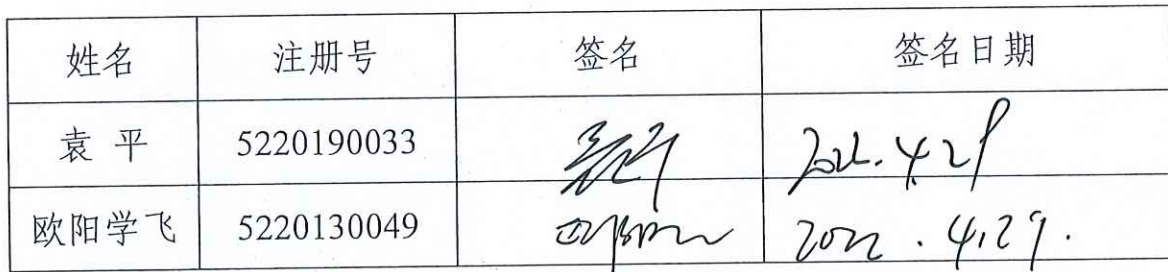 姓名 注册号 签名 签名日期
袁 平 5220190033 袁平 2022.4.29
欧阳学飞 5220130049 2022.4.29.